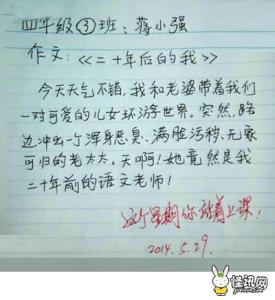 四年级③班：蒋小强
作文：<<二十年后的我>>
今天天气不错，我和老婆带着我们
一对可爱的儿女环游世界。突然，路
边冲出一个浑身恶臭、满脸污秽、无家
可归的老太太。天啊！她竟然是我
二十年前的语文老师！
这个星期你站着上课！
2014.5.29.
怪讯网